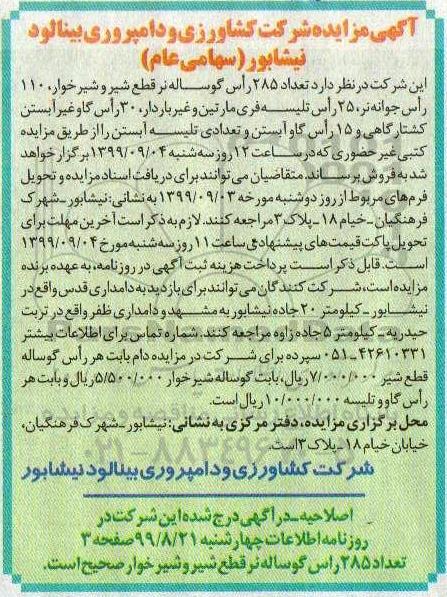 آگهی مزایده شرکت کشاورزی و دامپروری بینالود
نیشابور (سهامی عام)
این شرکت در نظر دارد تعداد ۲۸۵ رأس گوساله نر قطع شیر و شیرخوار، ۱۱۰
رأس جوانه نر، ۲۵ رأس تلیسه فری مارتین و غیرباردار، ۳۰ رأس گاو غیرآبستن
کشتارگاهی و ۱۵ رأس گاو آبستن و تعدادی تلیسه آبستن را از طریق مزایده
کتبی غیرحضوری که در ساعت ۱۲ روز سه‌شنبه ۱۳۹۹/۰۹/۰۴ برگزار خواهد
شد به فروش برساند. متقاضیان می‌توانند برای دریافت اسناد مزایده و تحویل
فرم‌های مربوط از روز دوشنبه مورخه ۱۳۹۹/۰۹/۰۳ به نشانی: نیشابور ـ شهرک
فرهنگیان ـ خیام ۱۸ ـ پلاک ۳ مراجعه کنند. لازم به ذکر است آخرین مهلت برای
تحویل پاکت قیمت‌های پیشنهادی ساعت ۱۱ روز سه‌شنبه مورخ ۱۳۹۹/۰۹/۰۴
است. قابل ذکر است پرداخت هزینه ثبت آگهی در روزنامه، به عهده برنده
مزایده است، شرکت کنندگان می‌توانند برای بازدید به دامداری قدس واقع در
نیشابور ـ کیلومتر ۲۰ جاده نیشابور به مشهد و دامداری ظفر واقع در تربت
حیدریه ـ کیلومتر ۵ جاده زاوه مراجعه کنند. شماره تماس برای اطلاعات بیشتر
۴۲۶۱۰۳۳۱-۰۵۱ سپرده برای شرکت در مزایده دام بابت هر رأس گوساله
قطع شیر ۷/۰۰۰/۰۰۰ ریال، بابت گوساله شیرخوار ۵/۵۰۰/۰۰۰ ریال و بابت هر
رأس گاو و تلیسه ۱۰/۰۰۰/۰۰۰ ریال است.
محل برگزاری مزایده، دفتر مرکزی به نشانی: نیشابور ـ شهرک فرهنگیان،
خیابان خیام ۱۸ ـ پلاک ۳ است.
شرکت کشاورزی و دامپروری بینالود نیشابور
اصلاحیه ـ در آگهی درج شده این شرکت در
روزنامه اطلاعات چهارشنبه ۹۹/۸/۲۱ صفحه ۳
تعداد ۲۸۵ راس گوساله نر قطع شیر و شیرخوار صحیح است.